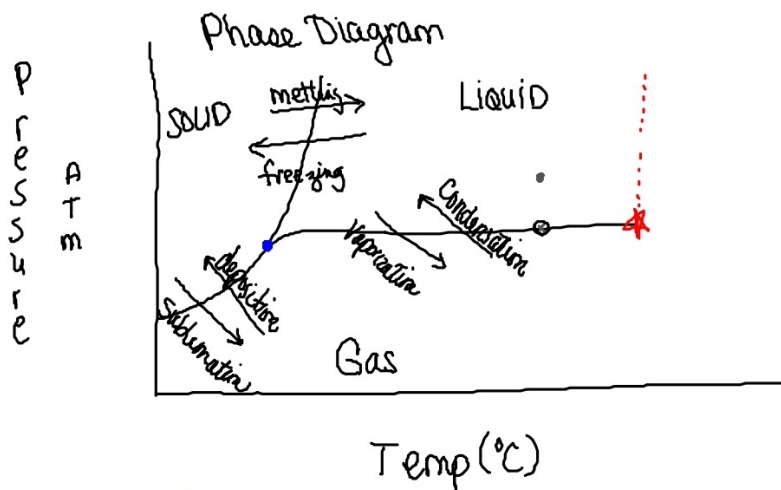 Phase Diagram
Pressure
ATM
SOLID
melting
freezing
LIQUID
Condensation
Vaporization
deposition
Sublimation
Gas
Temp (°C)